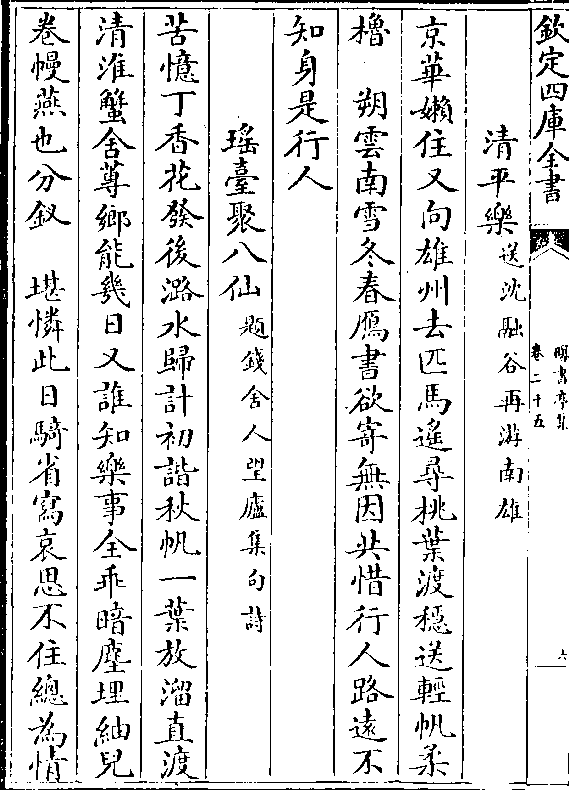 欽定四庫全書
曝書亭集
卷二十五
六
清平樂 送沈融谷再游南雄
京華嬾住又向雄州去匹馬遙尋桃葉渡穩送輕帆柔
櫓 朔雲南雪冬春鴈書欲寄無因共惜行人路遠不
知身是行人
瑶臺聚八仙 題錢舍人望廬集句詩
苦憶丁香花發後潞水歸計初諧秋帆一葉放溜直渡
清淮蟹舍蓴鄉能幾日又誰知樂事全乖暗塵埋紬兒
卷幔燕也分釵 堪憐此日騎省寫哀思不住總為情